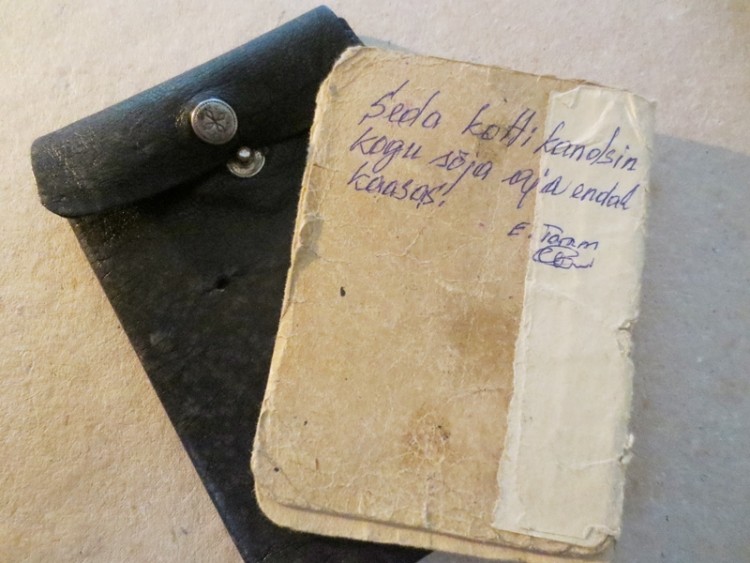 Seda kotti kandsin
kogu sõja aja endal
kaasas!
E. Tamm